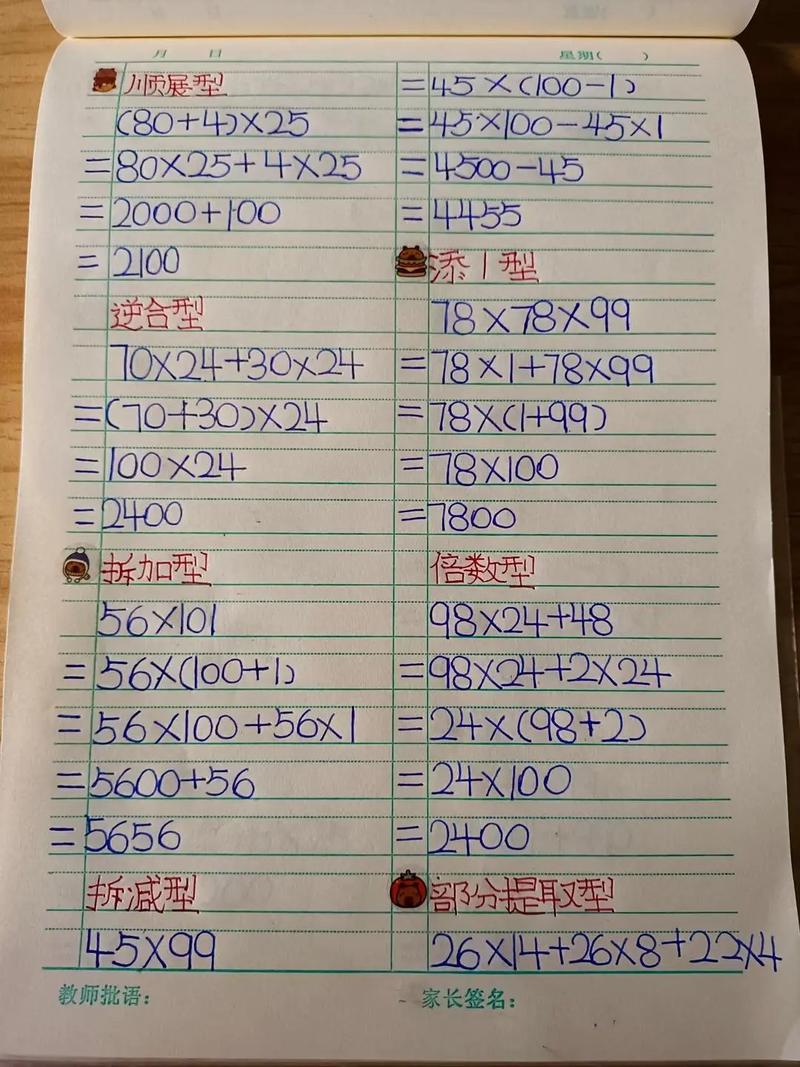 月 日 星期( )
顺展型
(80+4)×25
=80×25+4×25
=2000+100
=2100
逆合型
70×24+30×24
=(70+30)×24
=100×24
=2400
拆加型
56×101
=56×(100+1)
=56×100+56×1
=5600+56
=5656
拆减型
45×99
=45×(100-1)
=45×100-45×1
=4500-45
=4455
添1型
78×78×99
=78×1+78×99
=78×(1+99)
=78×100
=7800
倍数型
98×24+48
=98×24+2×24
=24×(98+2)
=24×100
=2400
部分提取型
26×14+26×8+22×4
教师批语: 家长签名: